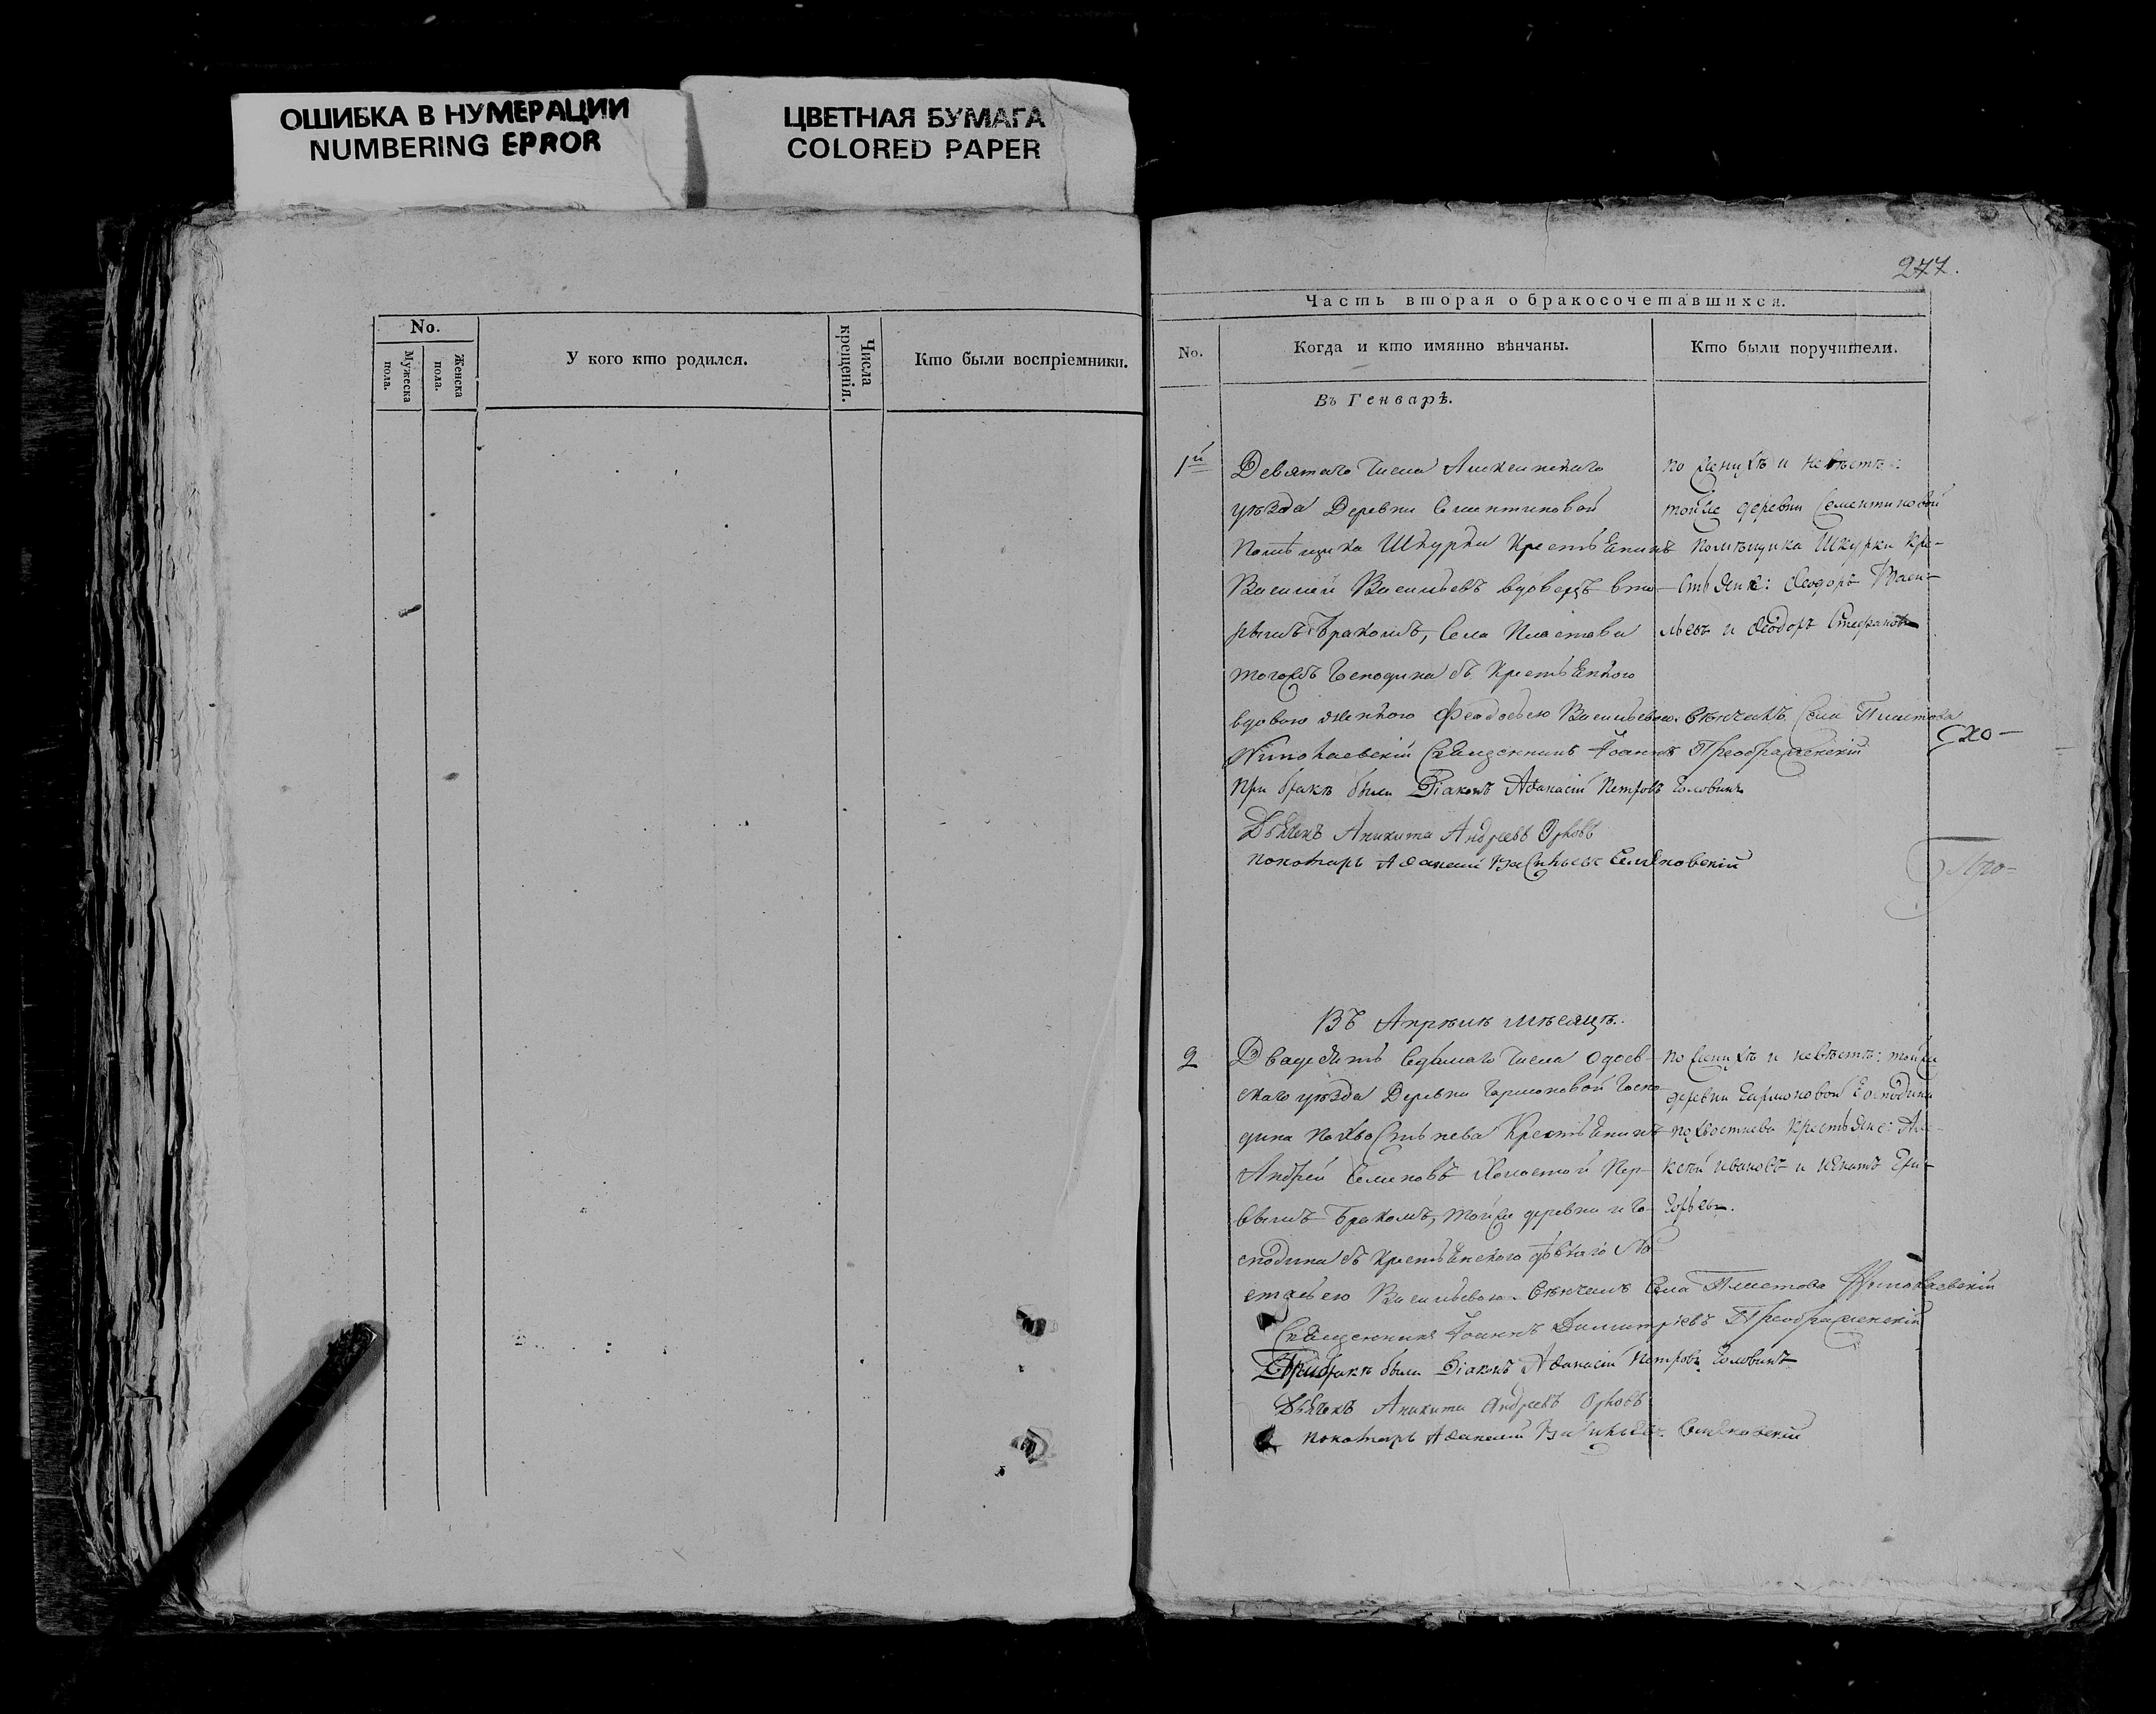 ОШИБКА В НУМЕРАЦИИ
NUMBERING ЕРROR
ЦВЕТНАЯ БУМАГА
COLORED PAPER
No.
Мужеска пола.
Женска пола.
У кого кто родился.
Числа крещенія.
Кто были воспріемники.
277.
Часть вторая о бракосочетавшихся.
No.
Когда и кто имянно вѣнчаны.
Кто были поручители.
Въ Генварѣ.
1й
Девятаго числа Алексинскаго
уѣзда Деревни Сементиновой
Помѣщика Шкурки крестьянинъ
Василей Васильевъ вдовецъ вто-
рымъ бракомъ, Села Пластова
тогожъ Господина съ крестьянкою
вдовою женкою Феодосьею Васильевою. Вѣнчалъ Села Пластова
Николаевскій Священникъ Іоаннъ Преображенскій
При бракѣ были Діаконъ Аѳанасій Петровъ Головинъ
Дьячекъ Аникита Андреевъ Орловъ
Пономарь Аѳанасій Васильевъ
по женихѣ и невѣстѣ:
тойже деревни Сементиновой
Помѣщика Шкурки кре-
стьяне: Ѳеодоръ Васи-
льевъ и Ѳеодоръ Стефановъ
Схо-
Про-
Въ Апрѣлѣ мѣсяцѣ.
2
Двадцать седьмаго числа Одоев-
скаго уѣзда Деревни Гармоновой Госпо-
дина Похвостнева Крестьянинъ
Андрей Семеновъ Холостой Пер-
вымъ бракомъ, тойже деревни и Го-
сподина съ крестьянскою дѣвкою На-
стасьею Васильевою. Вѣнчалъ Села Пластова Николаевскій
Священникъ Іоаннъ Димитріевъ Преображенскій
При бракѣ были Діаконъ Аѳанасій Петровъ Головинъ
Дьячекъ Аникита Андреевъ Орловъ
Пономарь Аѳанасій Васильевъ
по женихѣ и невѣстѣ: тойже
деревни Гармоновой Господина
Похвостнева крестьяне: Але-
ксѣй Ивановъ и Игнатъ Гри-
горьевъ.